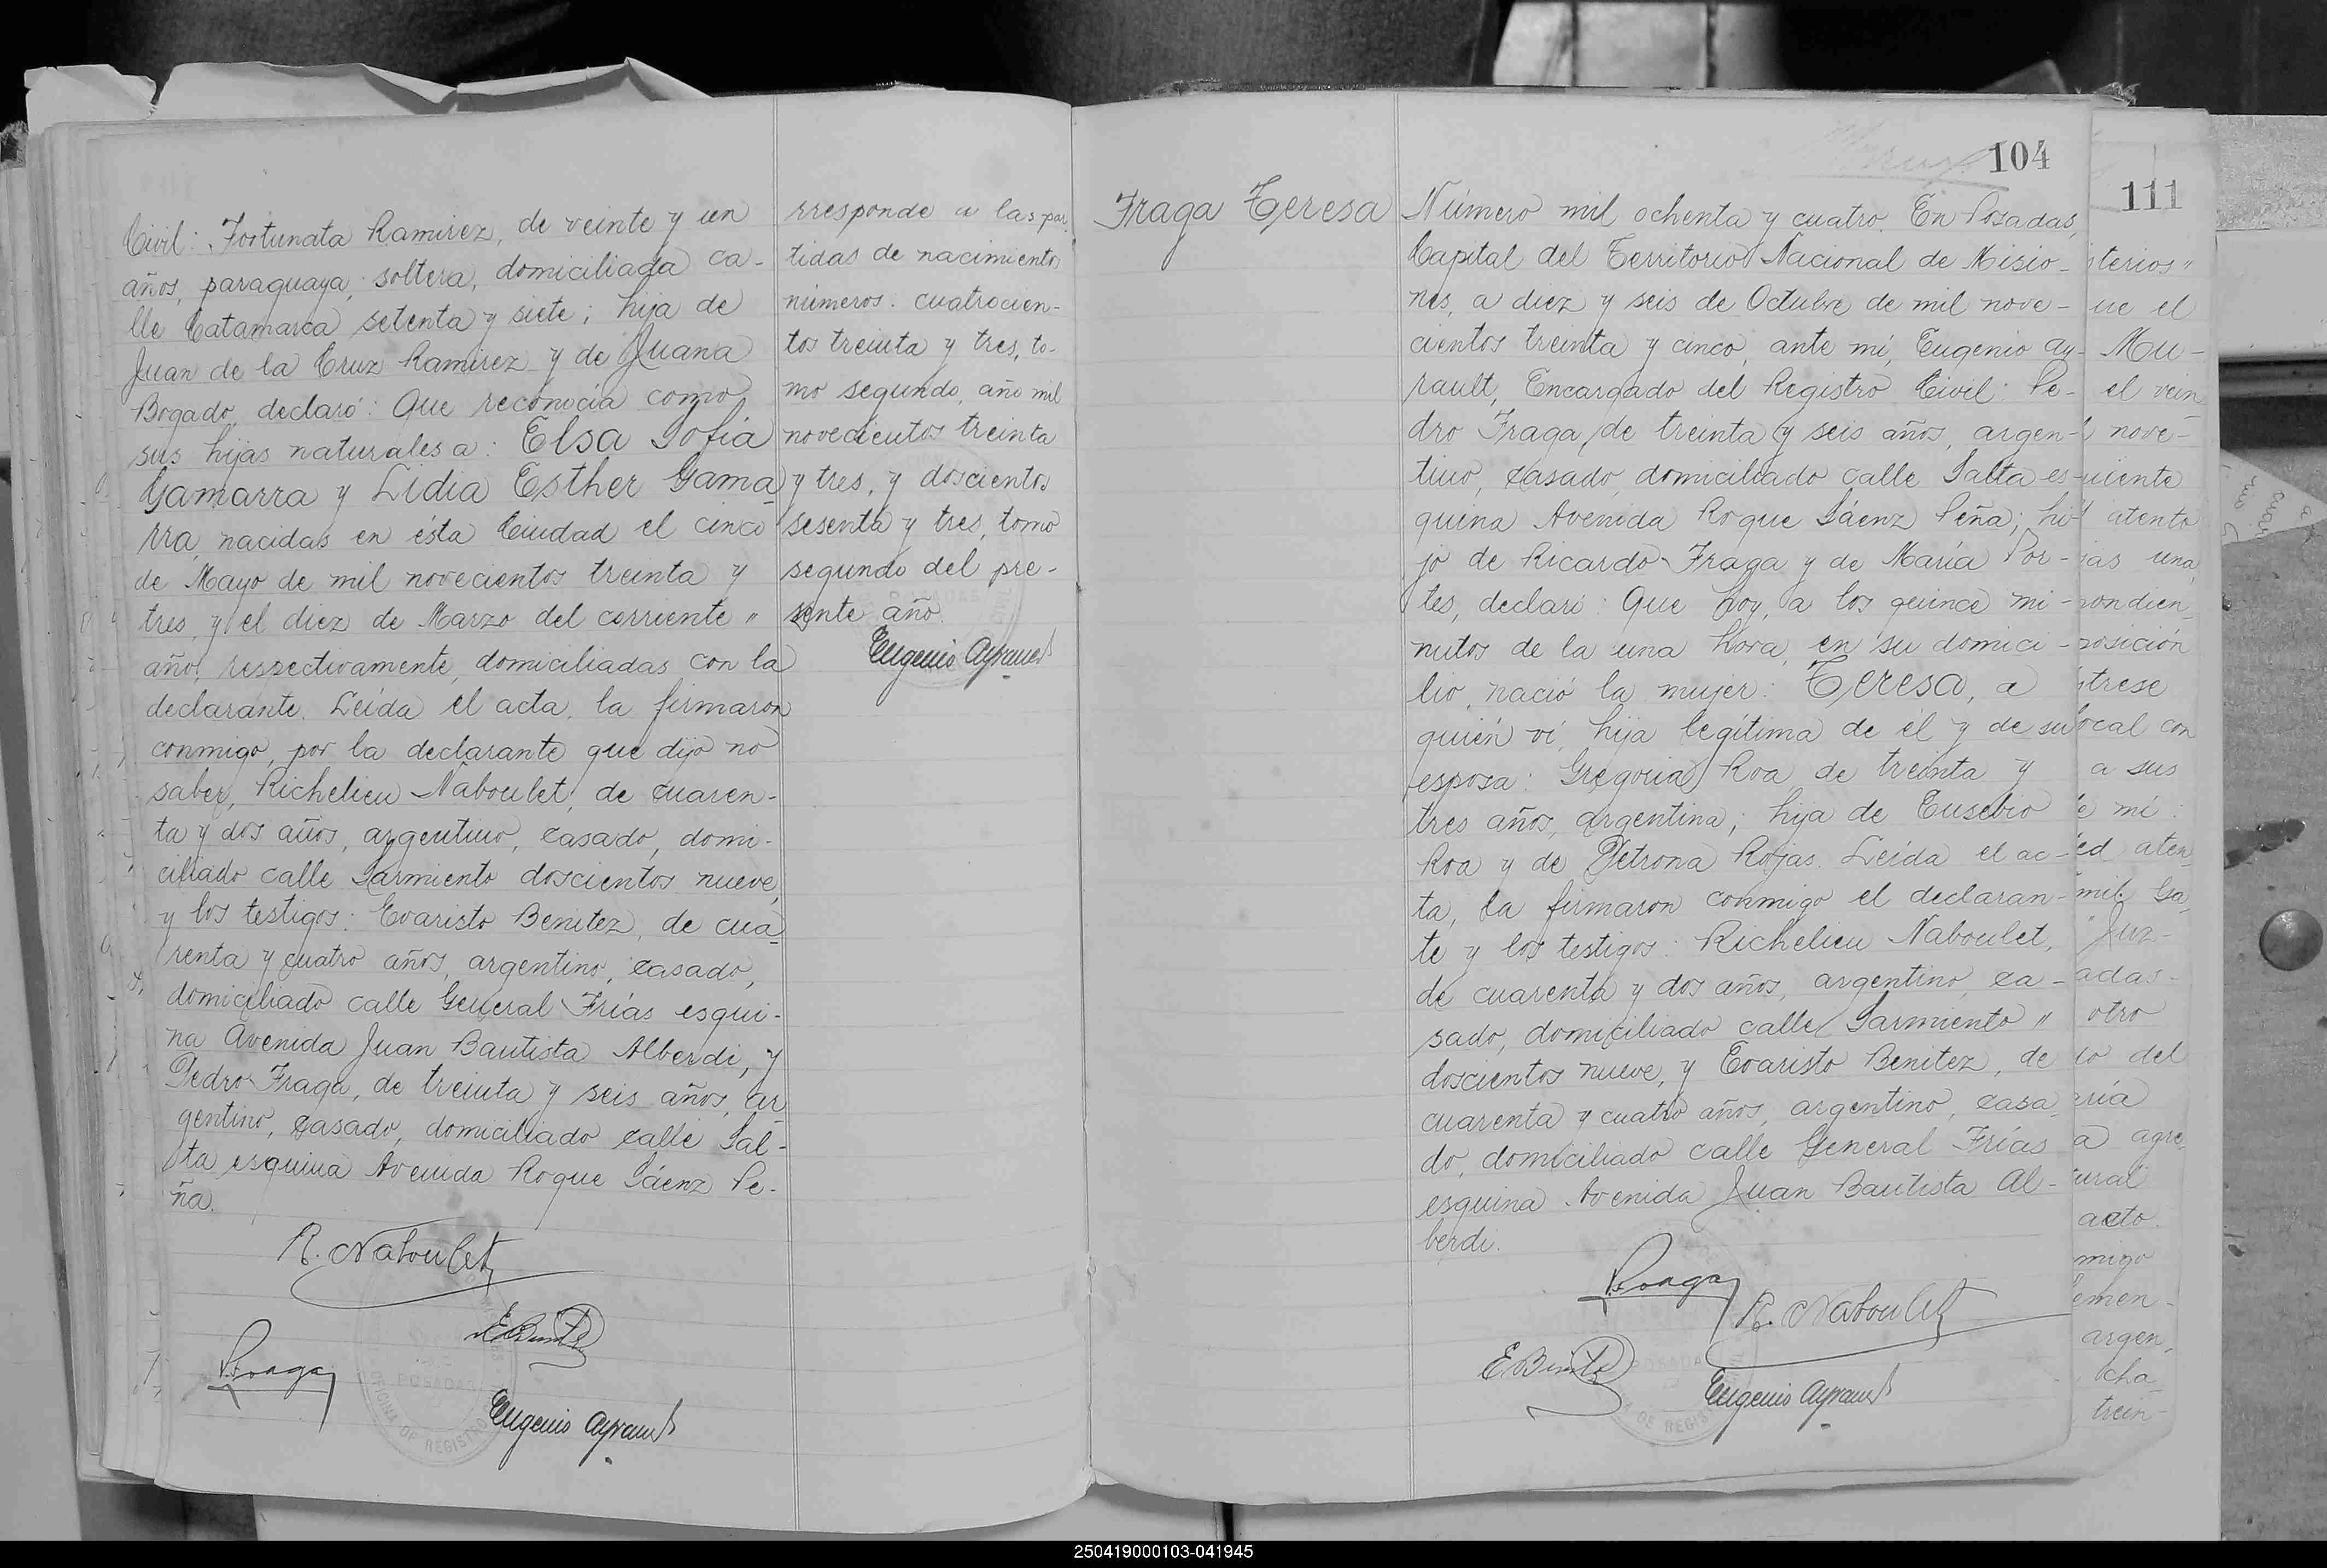 Civil: Fortunata Ramirez, de veinte y un
años, paraguaya, soltera, domiciliada ca-
lle Catamarca setenta y siete; hija de
Juan de la Cruz Ramirez y de Juana
Bogado, declaró: Que reconocía como
sus hijas naturales a: Elsa Sofía
Gamarra y Lidia Esther Gama-
rra, nacidas en ésta Ciudad el cinco
de Mayo de mil novecientos treinta y
tres y el diez de Marzo del corriente "
año, respectivamente, domiciliadas con la
declarante. Leída el acta, la firmaron
conmigo, por la declarante que dijo no
saber, Richelieu Naboulet, de cuaren-
ta y dos años, argentino, casado, domi-
ciliado calle Sarmiento doscientos nueve,
y los testigos: Evaristo Benitez, de cua-
renta y cuatro años, argentino, casado,
domiciliado calle General Frías esqui-
na Avenida Juan Bautista Alberdi, y
Pedro Fraga, de treinta y seis años, ar-
gentino, casado, domiciliado calle Sal-
ta esquina Avenida Roque Sáenz Pe-
ña.
R. Naboulet
E Benitez
P. Fraga
Eugenio Ayrault
POSADAS
OFICINA DE REGISTRO
rresponde a las par-
tidas de nacimiento
números: cuatrocien-
tos treinta y tres, to-
mo segundo, año mil
novecientos treinta
y tres, y doscientos
sesenta y tres, tomo
segundo del pre-
sente año.
Eugenio Ayrault
104
Fraga Teresa
Número mil ochenta y cuatro. En Posadas,
Capital del Territorio Nacional de Misio-
nes, a diez y seis de Octubre de mil nove-
cientos treinta y cinco, ante mí, Eugenio Ay-
rault, Encargado del Registro Civil: Pe-
dro Fraga, de treinta y seis años, argen-
tino, casado, domiciliado calle Salta es-
quina Avenida Roque Sáenz Peña; hi-
jo de Ricardo Fraga y de María Por-
tes, declaró: Que hoy, a los quince mi-
nutos de la una hora, en su domici-
lio, nació la mujer: Teresa, a
quién ví, hija legítima de él y de su
esposa: Gregoria Roa, de treinta y
tres años, argentina; hija de Eusebio
Roa y de Petrona Rojas. Leída el ac-
ta, la firmaron conmigo el declaran-
te y los testigos: Richelieu Naboulet,
de cuarenta y dos años, argentino, ca-
sado, domiciliado calle Sarmiento "
doscientos nueve, y Evaristo Benitez, de
cuarenta y cuatro años, argentino, casa-
do, domiciliado calle General Frías
esquina Avenida Juan Bautista Al-
berdi.
P. Fraga
R. Naboulet
E Benitez
Eugenio Ayrault
POSADAS
DE REGIS
111
terios "
ue el
Mu-
el vein
nove-
uiente
atento
jas una
rondien
posición
trese
local con
a sus
e mí:
ed aten
mil Ga
Juz-
adas-
otro
to del
ería
a agre
tural
acto
migo
emen-
argen,
ocha
trein-
250419000103-041945